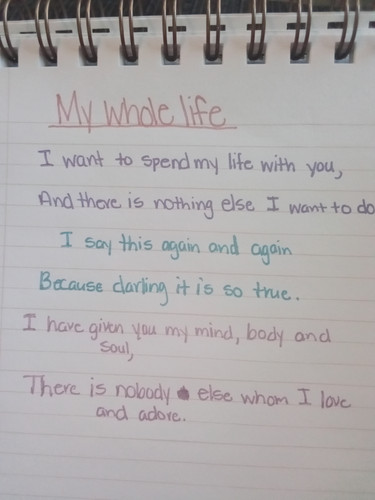 My whole life
I want to spend my life with you,
And there is nothing else I want to do
I say this again and again
Because darling it is so true.
I have given you my mind, body and
soul,
There is nobody else whom I love
and adore.